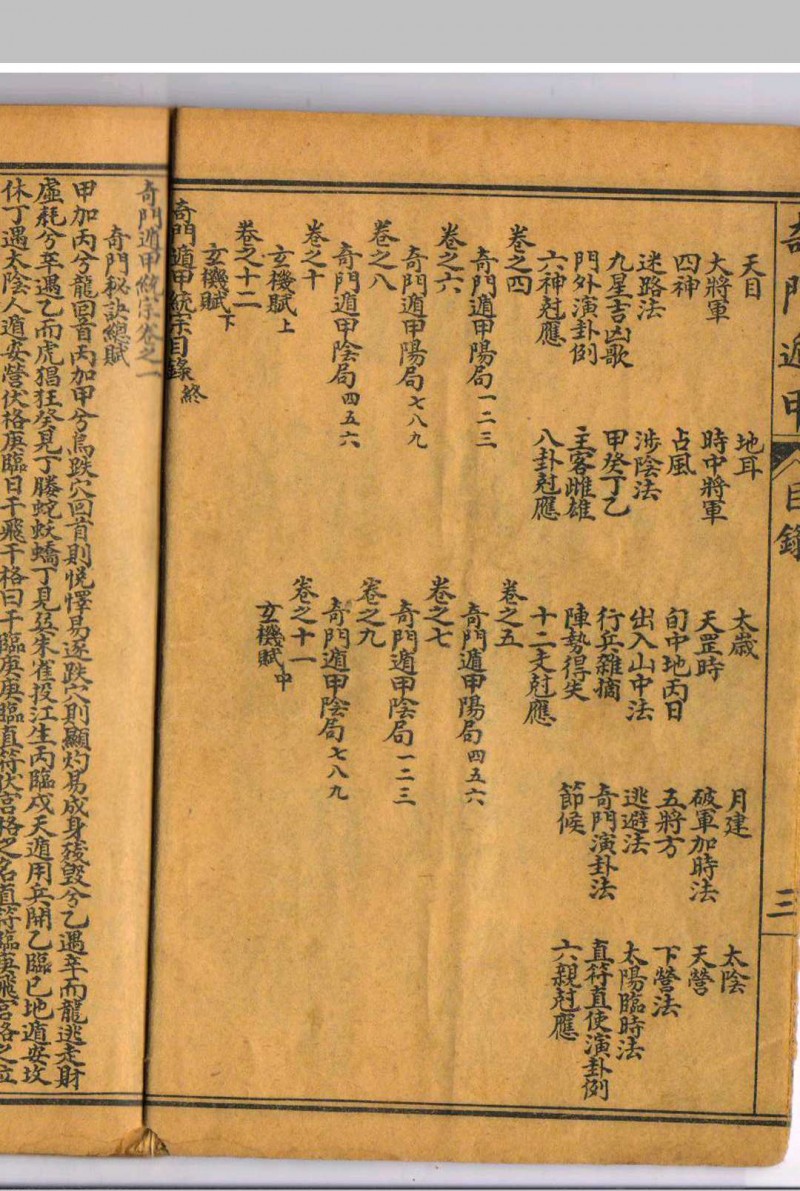 奇門遁甲 目錄 三
天目 地耳 太歲 月建 太陰
大將軍 時中將軍 天罡時 破軍加時法 天營
四神 占風 旬中地丙日 五將方 下營法
迷路法 涉陰法 出入山中法 逃避法 太陽臨時法
九星吉凶歌 甲癸丁乙 行兵雜摘 奇門演卦法 直符直使演卦例
門外演卦例 主客雌雄 陣勢得失 節候 六親尅應
六神尅應 八卦尅應 十二支尅應
卷之四 卷之五
奇門遁甲陽局一二三 奇門遁甲陽局四五六
卷之六 卷之七
奇門遁甲陽局七八九 奇門遁甲陰局一二三
卷之八 卷之九
奇門遁甲陰局四五六 奇門遁甲陰局七八九
卷之十 卷之十一
玄機賦上 玄機賦中
卷之十二
玄機賦下
奇門遁甲統宗目錄終
奇門遁甲統宗卷之一
奇門秘訣總賦
甲加丙兮龍回首丙加甲兮鳥跌穴回首則悅懌易遂跌穴則顯灼易成身殘毀兮乙遇辛而龍逃走財
虛耗兮辛遇乙而虎猖狂癸見丁騰蛇妖蟜丁見癸朱雀投江生丙臨戊天遁用兵開乙臨巳地遁安坟
休丁遇太陰人遁安營伏格庚臨日干飛干格日干臨庚庚臨直符伏宮格之名直符臨庚飛宮格之位